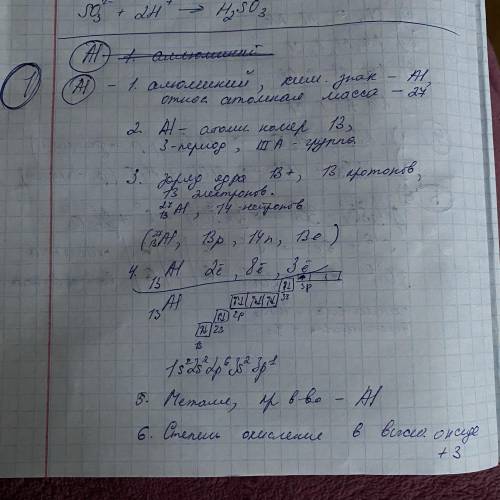 SO₃²⁻ + 2H⁺ → H₂SO₃
1
Al 1. аллюминий
Al - 1. алюминий, хим. знак - Al
относ. атомная масса - 27
2. Al - атомн. номер 13,
3-период, III A - группа.
3. заряд ядра 13+, 13 протонов,
13 электронов.
²⁷₁₃Al, 14 нетронов
(²⁷₁₃Al, 13p, 14n, 13e)
4. ₁₃Al 2ē, 8ē, 3ē
₁₃Al
3p
3s
2p
2s
1s
1s² 2s² 2p⁶ 3s² 3p¹
5. Металл, пр в-во - Al
6. Степень окисление в высш. оксиде
+3